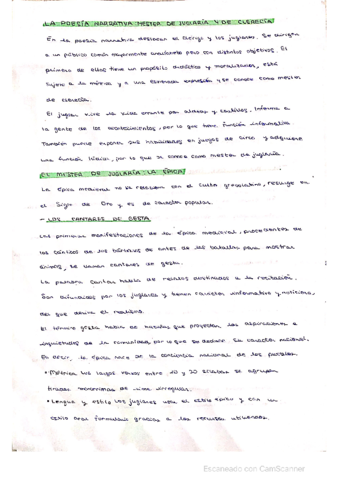 LA POESÍA NARRATIVA: MESTER DE JUGLARÍA Y DE CLERECÍA
En la poesía narrativa destacan el clérigo y los juglares. Se dirigen
a un público común mayormente analfabeto pero con distintos objetivos. El
primero de ellos tiene un propósito didáctico y moralizante, está
sujeto a la métrica y a una elaborada expresión y se conoce como mester
de clerecía.
El juglar vive la vida errante por aldeas y castillos. Informa a
la gente de los acontecimientos, por lo que tiene función informativa.
También puede exponer sus habilidades en juegos de circo y adquiere
una función lúdica, por lo que se conoce como mester de juglaría.
EL MESTER DE JUGLARÍA: LA ÉPICA
La épica medieval no se relaciona con el culto grecolatino, resurge en
el Siglo de Oro y es de carácter popular.
- LOS CANTARES DE GESTA
Las primeras manifestaciones de la épica medieval, procedentes de
los cánticos de los bárbaros de antes de las batallas para mostrar
ánimos, se llaman cantares de gesta.
La palabra cantar habla de relatos destinados a la recitación.
Son difundidos por los juglares y tienen carácter informativo y noticiero,
del que deriva el realismo.
El término gesta habla de hazañas que proyectan las aspiraciones e
inquietudes de la comunidad por lo que se declara su carácter nacional.
Es decir, la épica nace de la conciencia nacional de los pueblos.
• Métrica: los largos versos entre 10 y 20 sílabas se agrupan
tiradas de rima irregulares.
• Lengua y estilo: los juglares usan el estilo épico y con un
estilo oral formulario gracias a los recursos utilizados.
Escaneado con CamScanner